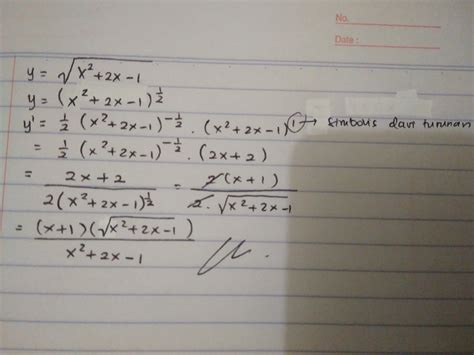 No.
Date :
y = √(x²+2x-1)
y = (x²+2x-1)^(1/2)
y' = 1/2 (x²+2x-1)^(-1/2) . (x²+2x-1)^1 → simbolis dari turunan
= 1/2 (x²+2x-1)^(-1/2) . (2x+2)
= (2x+2)/(2(x²+2x-1)^(1/2)) = 2(x+1)/(2.√(x²+2x-1))
= (x+1)(√(x²+2x-1))/(x²+2x-1)